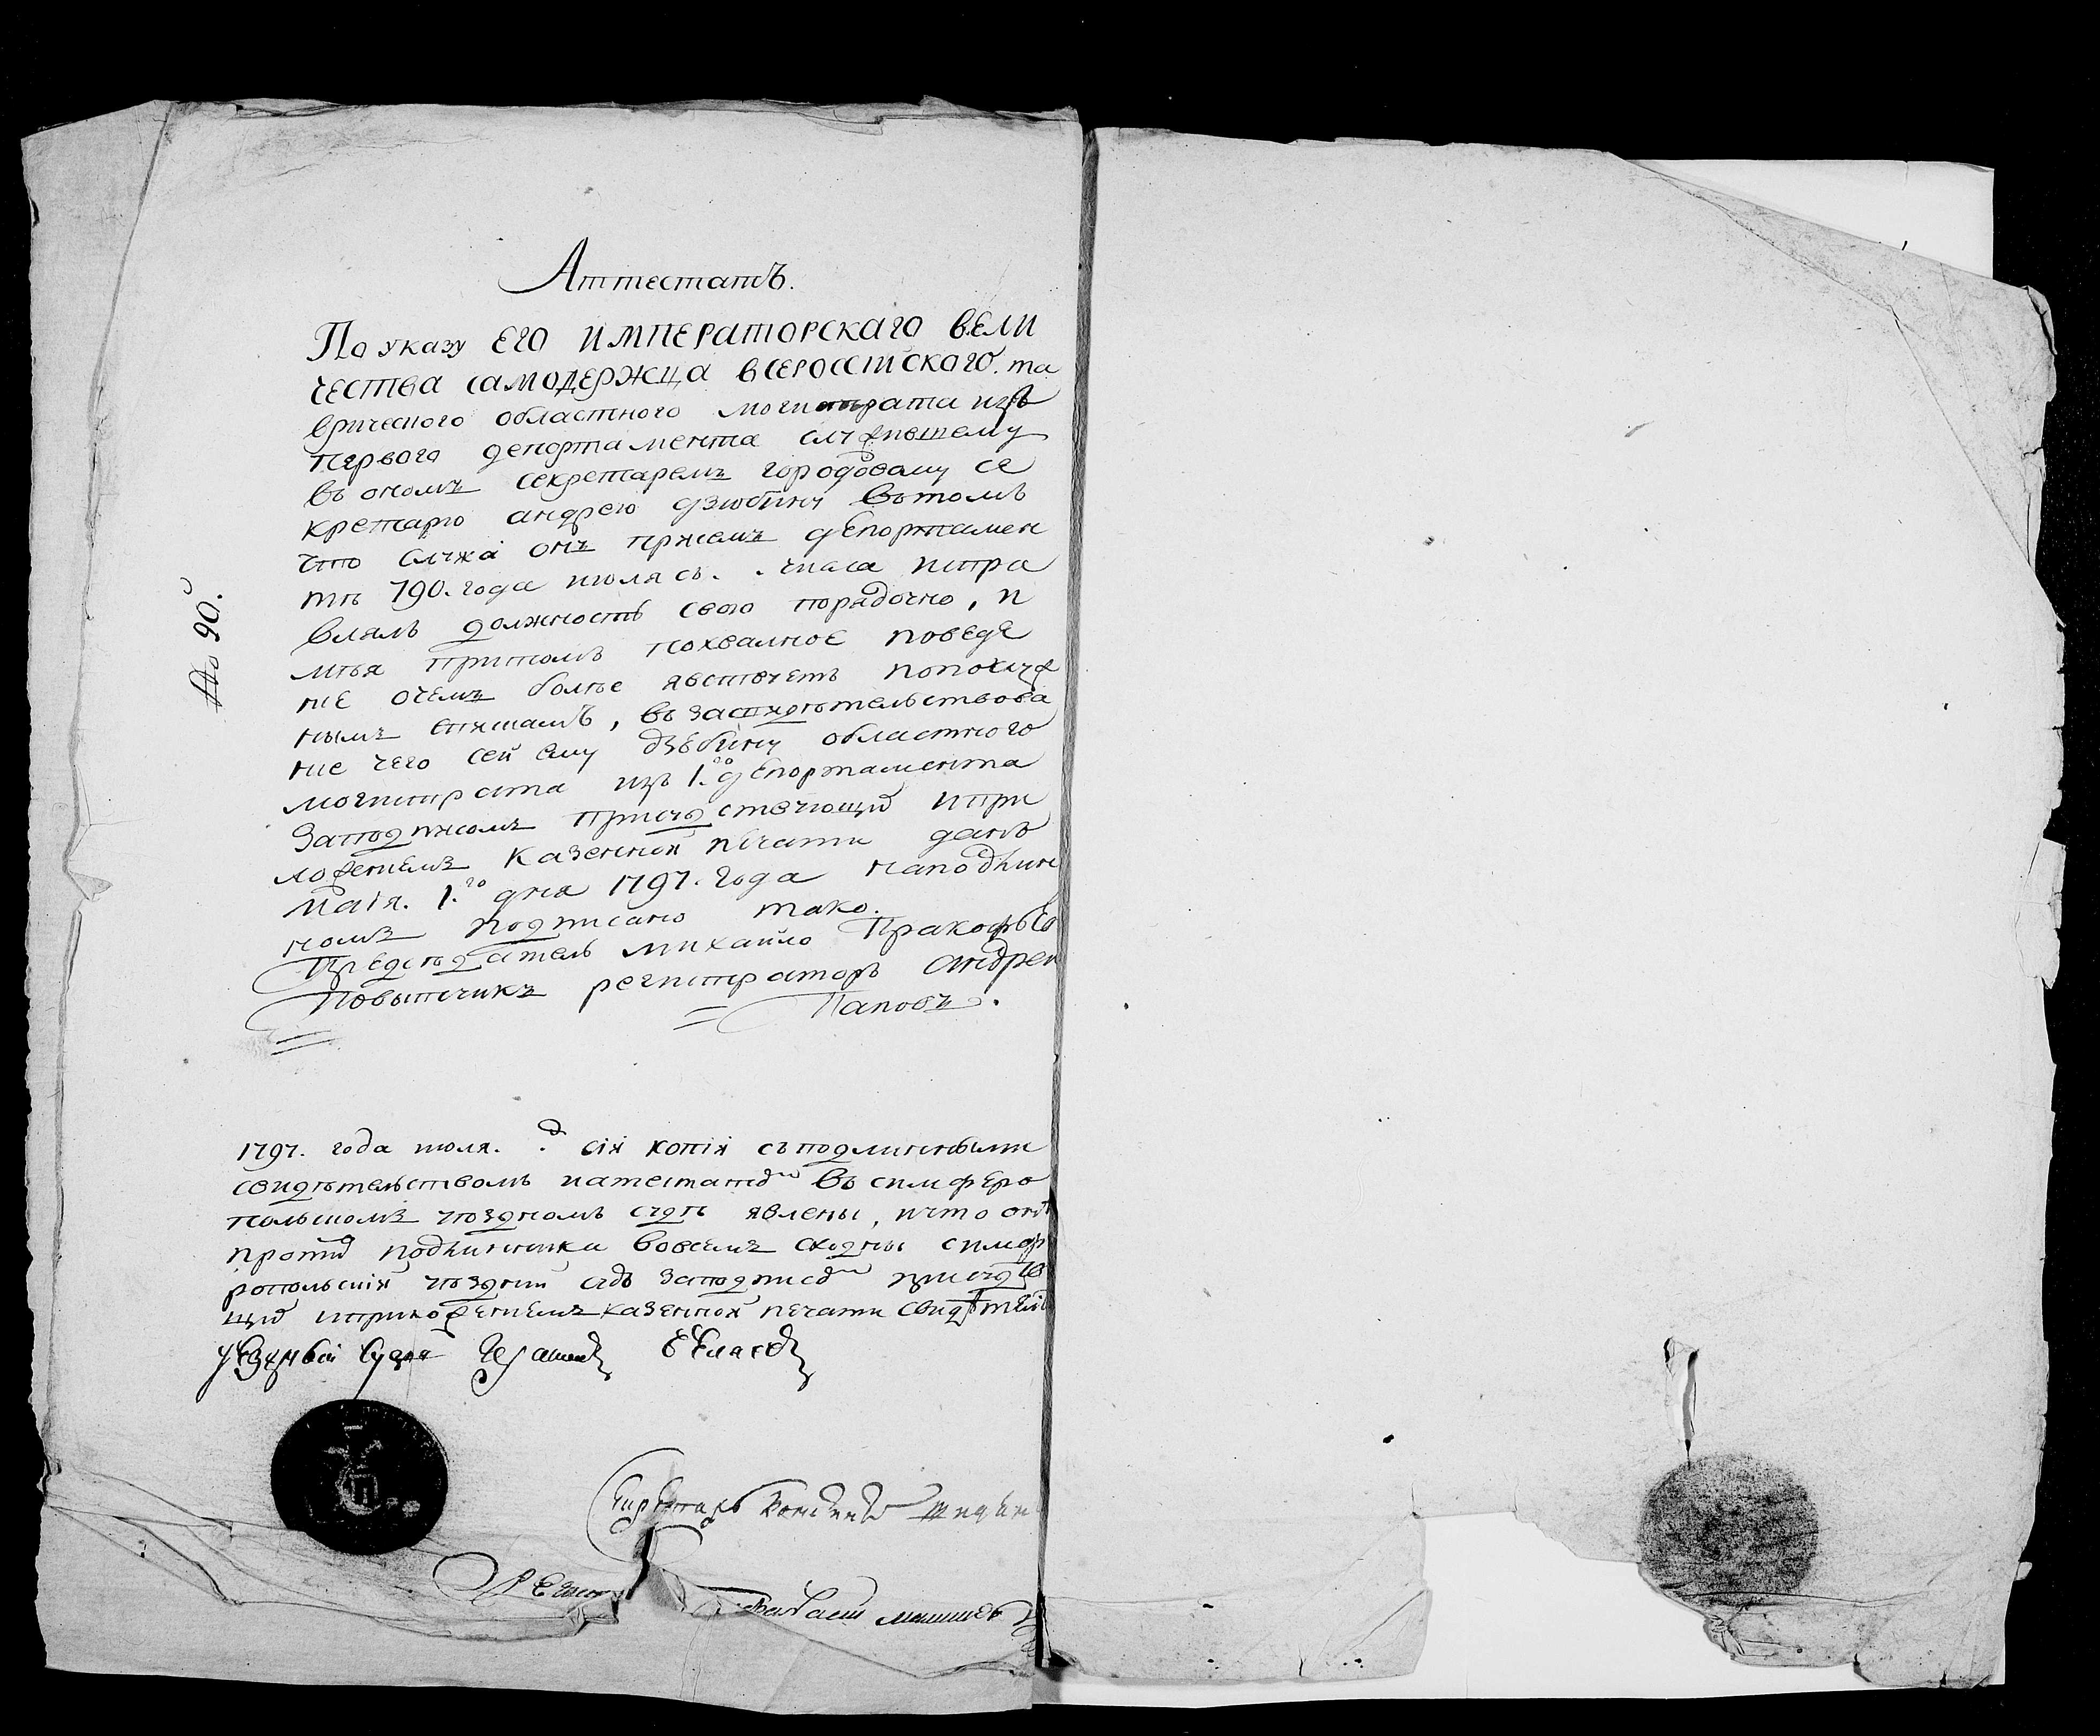 Аттестатъ.
По указу ЕГО ИМПЕРАТОРСКАГО ВЕЛИ
ЧЕСТВА САМОДЕРЖЦА ВСЕРОССІЙСКОГО. та
врического областного могистрата изъ
первого депортамента служившему
въ ономъ секретаремъ городовому се
кретарю андрею дзюбину вътомъ
что служа онъ присемъ депортамен
те 790. года июля съ. . числа испра
влялъ должность свою порядочно, и
мѣя притомъ похвалное поведе
ние очемъ более явствуетъ попослуж
нымъ спискамъ, въ засвидѣтельствова
ние чего сей ему дзюбину областного
могистрата изъ 1.го депортамента
Заподписомъ присудствующих ипри
ложениемъ казенной печати данъ
маія. 1.го дня 1797. года наподлин
номъ подписано тако.
Председатель михайло Пракофьев
Повытчикъ регистраторъ андреи
Паповъ.
№ 90.
1797. года июля. д. сія копія съподлинными
свидѣтельствомъ иатестатом въ симферо
польскомъ уѣздномъ судѣ явлены, ичто они
противъ подлинника вовсемъ сходны симфе
ропольскій уѣздний судъ заподписом присудств
щих иприложениемъ казенной печати свидѣтель
уездный судя
Секретарь